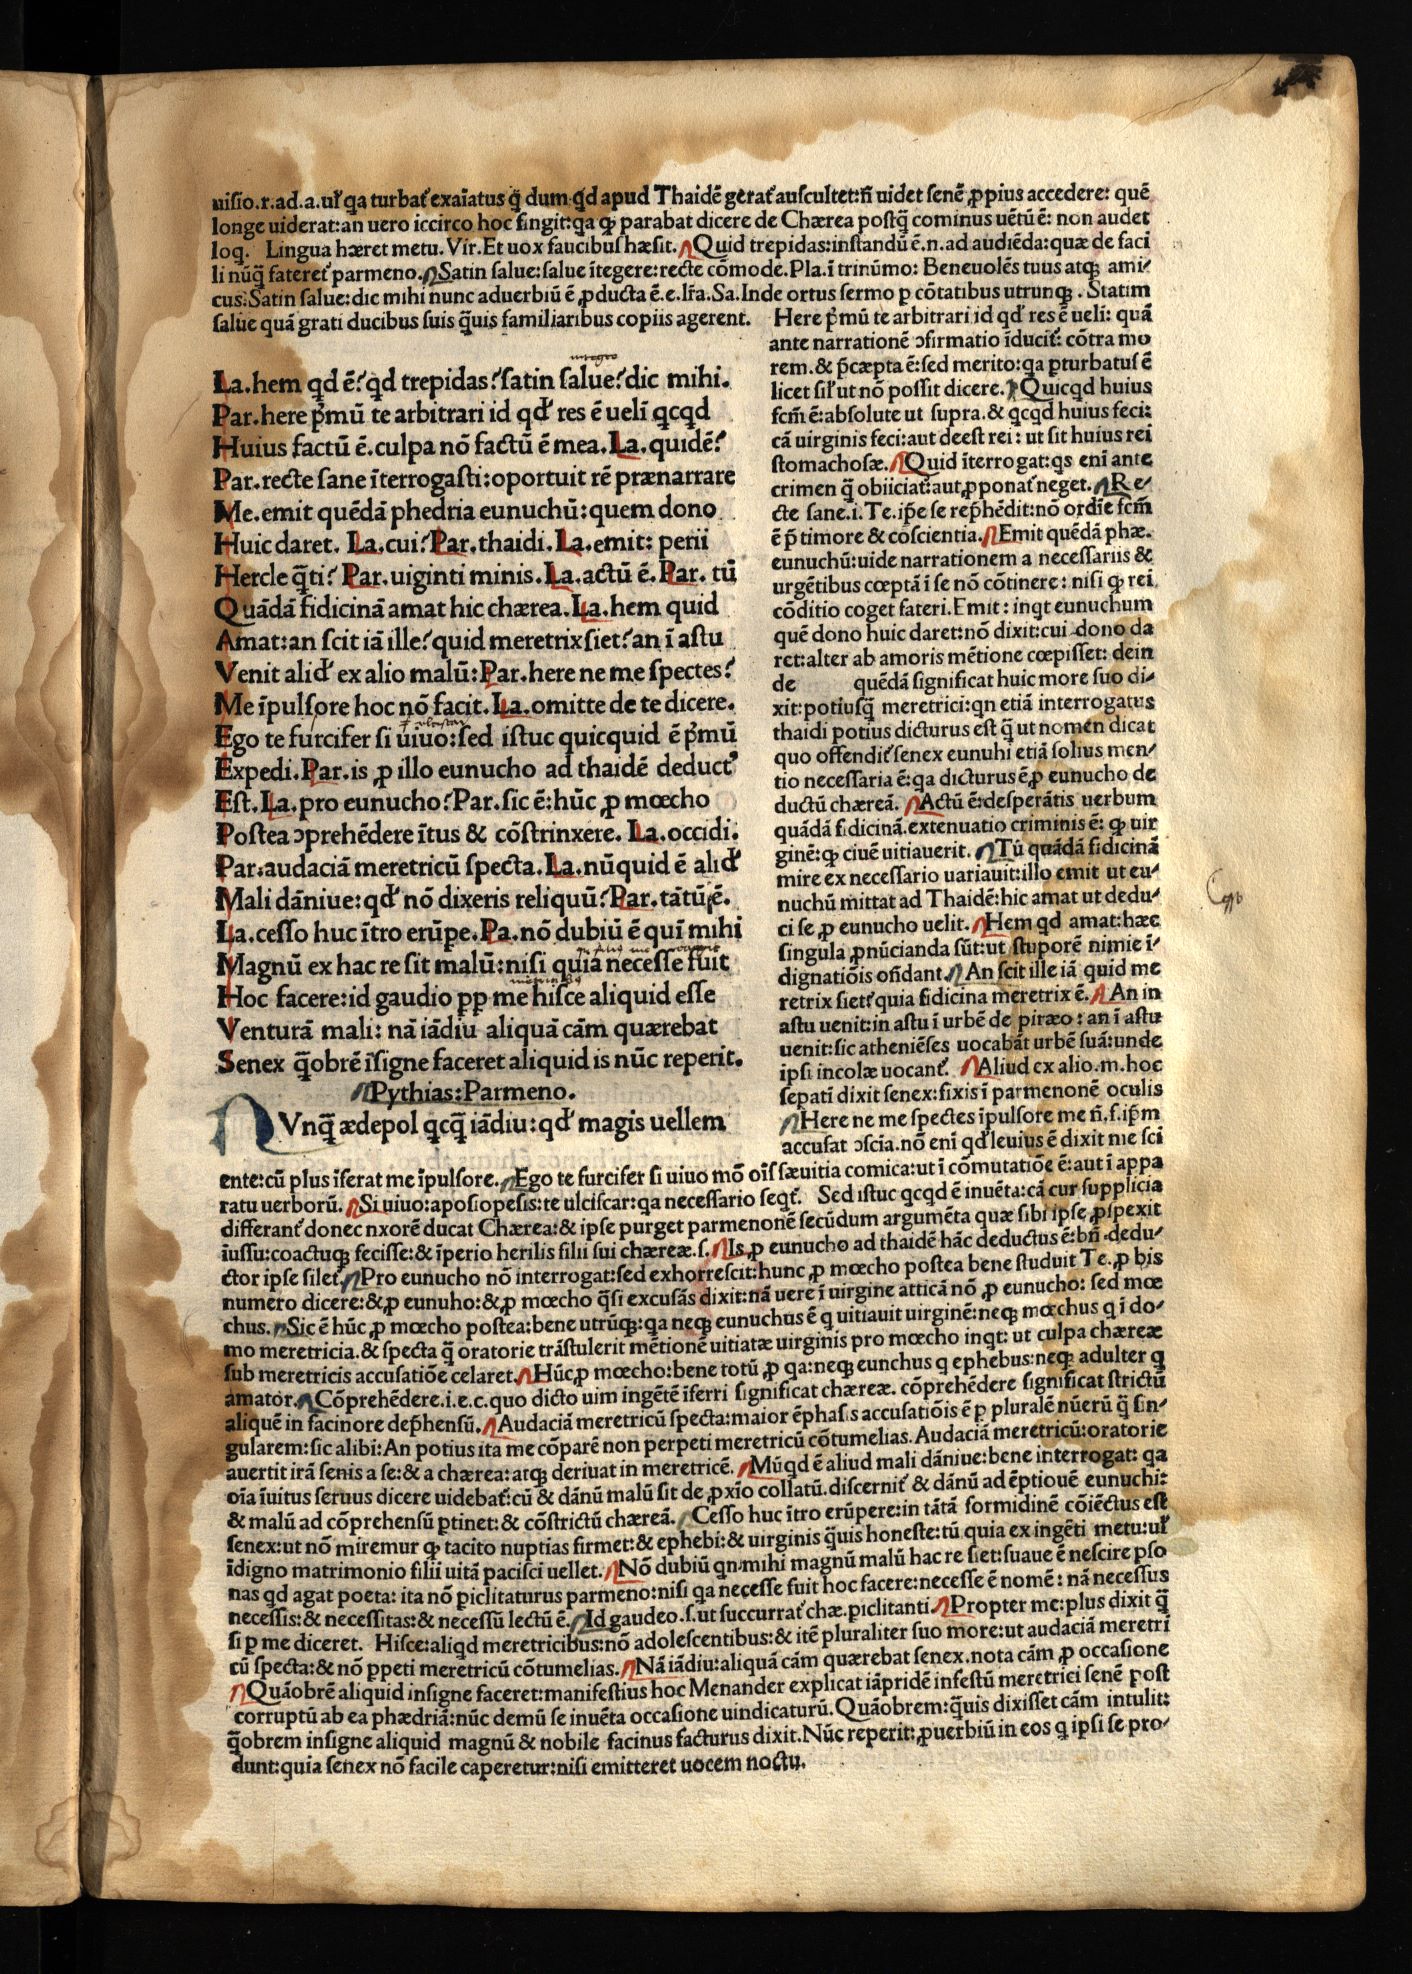 uisio.r.ad.a.ul̄ qa turbat᷑ exaīatus q̄ dum qd apud Thaidē gerat᷑ auscultet:n̄ uidet senē ꝓpius accedere: quē
longe uiderat:an uero iccirco hoc fingit:qa ꝙ parabat dicere de Chærea postq̄ cominus uētū ē: non audet
loq. Lingua hæret metu. Vir. Et uox faucibus hæsit. Quid trepidas:instandū ē.n.ad audiēda:quæ de faci
li nūq̄ fateret᷑ parmeno. Satin salue:salue ītegere:recte cōmode.Pla.ī trinūmo: Beneuolēs tuus atqꝫ ami-
cus. Satin salue:dic mihi nunc aduerbiū ē ꝓducta ē.e.lr̄a.Sa.Inde ortus sermo p cōtatibus utrunqꝫ. Statim
salue quā grati ducibus suis q̄uis familiaribus copiis agerent.
La.hem qd ē? qd trepidas? satin salue? dic mihi.
Par.here p̄mū te arbitrari id qđ res ē uelī qcqd
Huius factū ē.culpa nō factū ē mea.La.quidē?
Par.recte sane īterrogasti:oportuit rē prænarrare
Me.emit quēdā phedria eunuchū:quem dono
Huic daret. La.cui? Par.thaidi. La.emit: perii
Hercle q̄ti? Par.uiginti minis.La.actū ē.Par. tū
Quādā fidicinā amat hic chærea.La.hem quid
Amat:an scit iā ille? quid meretrix siet? an ī astu
Venit aliđ ex alio malū:Par.here ne me spectes?
Me īpulsore hoc nō facit. La.omitte de te dicere.
Ego te furcifer si uiuo:sed istuc quicquid ē p̄mū
Expedi.Par.is ꝓ illo eunucho ad thaidē deductꝰ
Est.La.pro eunucho? Par.sic ē:hūc ꝓ mœcho
Postea ↄprehēdere ītus & cōstrinxere. La.occidi.
Par.audaciā meretricū specta.La.nūquid ē aliđ
Mali dāniue:qđ nō dixeris reliquū? Par.tātū ē.
La.cesso huc ītro erūpe.Pa.nō dubiū ē quī mihi
Magnū ex hac re sit malū:nisi quia necesse fuit
Hoc facere:id gaudio pp me hisce aliquid esse
Venturā mali: nā iādiu aliquā cām quærebat
Senex q̄obrē īsigne faceret aliquid is nūc reperit.
Pythias:Parmeno.
NVnq̄ ædepol qcq̄ iādiu:qđ magis uellem
Here p̄mū te arbitrari id qđ res ē ueli: quā
ante narrationē ↄfirmatio īducit᷑: cōtra mo
rem.& p̄cæpta ē:sed merito:qa pturbatus ē
licet sil̄ ut nō possit dicere. Quicqd huius
fcm̄ ē:absolute ut supra.& qcqd huius feci:
cā uirginis feci:aut deest rei: ut sit huius rei
stomachosæ. Quid īterrogat:qs enī ante
crimen q̄ obiiciat᷑:aut ꝓponat᷑ neget. Re-
cte sane.i.Te.ip̄e se rep̄hēdit:nō ordīe fcm̄
ē p̄ timore & cōscientia. Emit quēdā phæ.
eunuchū:uide narrationem a necessariis &
urgētibus cœptā ī se nō cōtinere: nisi ꝙ rei
cōditio coget fateri.Emit: inqt eunuchum
quē dono huic daret:nō dixit:cui dono da
ret:alter ab amoris mētione cœpisset: dein
de quēdā significat huic more suo di-
xit:potiusq̄ meretrici:qn etiā interrogatus
thaidi potius dicturus est q̄ ut nomen dicat
quo offendit᷑ senex eunuhi etiā solius men-
tio necessaria ē:qa dicturus ē ꝓ eunucho de
ductū chæreā. Actū ē:desperātis uerbum
quādā fidicinā.extenuatio criminis ē: ꝙ uir
ginē:ꝙ ciuē uitiauerit. Tū quādā fidicinā
mire ex necessario uariauit:illo emit ut eu-
nuchū mittat ad Thaidē:hic amat ut dedu-
ci se ꝓ eunucho uelit. Hem qd amat:hæc
singula ꝓnūcianda sūt:ut stuporē nimie ī-
dignatiōis oñdant. An scit ille iā quid me
retrix siet? quia fidicina meretrix ē. An in
astu uenit:in astu ī urbē de piræo: an ī astu
uenit:sic atheniēses uocabāt urbē suā:unde
ipsi incolæ uocant᷑. Aliud ex alio.m.hoc
sepati dixit senex:fixis ī parmenonē oculis
Here ne me spectes īpulsore me n̄.f.ip̄m
accusat ↄscia.nō enī qđ leuius ē dixit me sci
ente:cū plus īferat me īpulsore. Ego te furcifer si uiuo mō oīs sæuitia comica:ut ī cōmutatiōe ē:aut ī appa
ratu uerborū. Si uiuo:aposiopesis:te ulciscar:qa necessario seqt᷑. Sed istuc qcqd ē inuēta:cā cur supplicia
differant᷑ donec nxorē ducat Chærea:& ipse purget parmenonē secūdum argumēta quæ sibi ipse ꝓspexit
iussu:coactuqꝫ fecisse:& īperio herilis filii sui chæreæ.s. Is ꝓ eunucho ad thaidē hāc deductus ē:bn̄ dedu-
ctor ipse silet᷑. Pro eunucho nō interrogat:sed exhorrescit:hunc ꝓ mœcho postea bene studuit Te.ꝓ bis
numero dicere:& ꝓ eunuho:& ꝓ mœcho q̄si excusās dixit:nā uere ī uirgine atticā nō ꝓ eunucho: sed mœ
chus. Sic ē hūc ꝓ mœcho postea:bene utrūqꝫ:qa neqꝫ eunuchus ē q uitiauit uirginē:neqꝫ mœchus q ī do-
mo meretricia.& specta q̄ oratorie trāstulerit mētionē uitiatæ uirginis pro mœcho inqt: ut culpa chæreæ
sub meretricis accusatiōe celaret. Hūc ꝓ mœcho:bene totū ꝓ qa:neqꝫ eunchus q ephebus:neqꝫ adulter q
amator. Cōprehēdere.i.e.c.quo dicto uim ingētē īferri significat chæreæ. cōprehēdere significat strictū
aliquē in facinore dep̄hensū. Audaciā meretricū specta:maior ēphasis accusatiōis ē p pluralē nūerū q̄ sin-
gularem:sic alibi:An potius ita me cōparē non perpeti meretricū cōtumelias.Audaciā meretricū:oratorie
auertit irā senis a se:& a chærea:atqꝫ deriuat in meretricē. Mūqd ē aliud mali dāniue:bene interrogat: qa
oīa īuitus seruus dicere uidebat᷑:cū & dānū malū sit de ꝓxīo collatū.discernit᷑ & dānū ad ēptiouē eunuchi:
& malū ad cōprehensū ptinet:& cōstrictū chæreā. Cesso huc ītro erūpere:in tātā formidinē cōiēctus est
senex:ut nō miremur ꝙ tacito nuptias firmet:& ephebi:& uirginis q̄uis honeste:tū quia ex ingēti metu:ul̄
īdigno matrimonio filii uitā pacisci uellet. Nō dubiū qn mihi magnū malū hac re siet:suaue ē nescire pso
nas qd agat poeta: ita nō piclitaturus parmeno:nisi qa necesse fuit hoc facere:necesse ē nomē: nā necessus
necessis:& necessitas:& necessū lectū ē. Id gaudeo.s.ut succurrat᷑ chæ.piclitanti. Propter me:plus dixit q̄
si p me diceret. Hisce:aliqd meretricibus:nō adolescentibus:& itē pluraliter suo more:ut audaciā meretri
cū specta:& nō ppeti meretricū cōtumelias. Nā iādiu:aliquā cām quærebat senex.nota cām ꝓ occasione
Quāobrē aliquid insigne faceret:manifestius hoc Menander explicat iāpridē infestū meretrici senē post
corruptū ab ea phædriā:nūc demū se inuēta occasione uindicaturū. Quāobrem:q̄uis dixisset cām intulit:
q̄obrem insigne aliquid magnū & nobile facinus facturus dixit. Nūc reperit:ꝓuerbiū in eos q ipsi se pro-
dunt:quia senex nō facile caperetur:nisi emitteret uocem noctu.